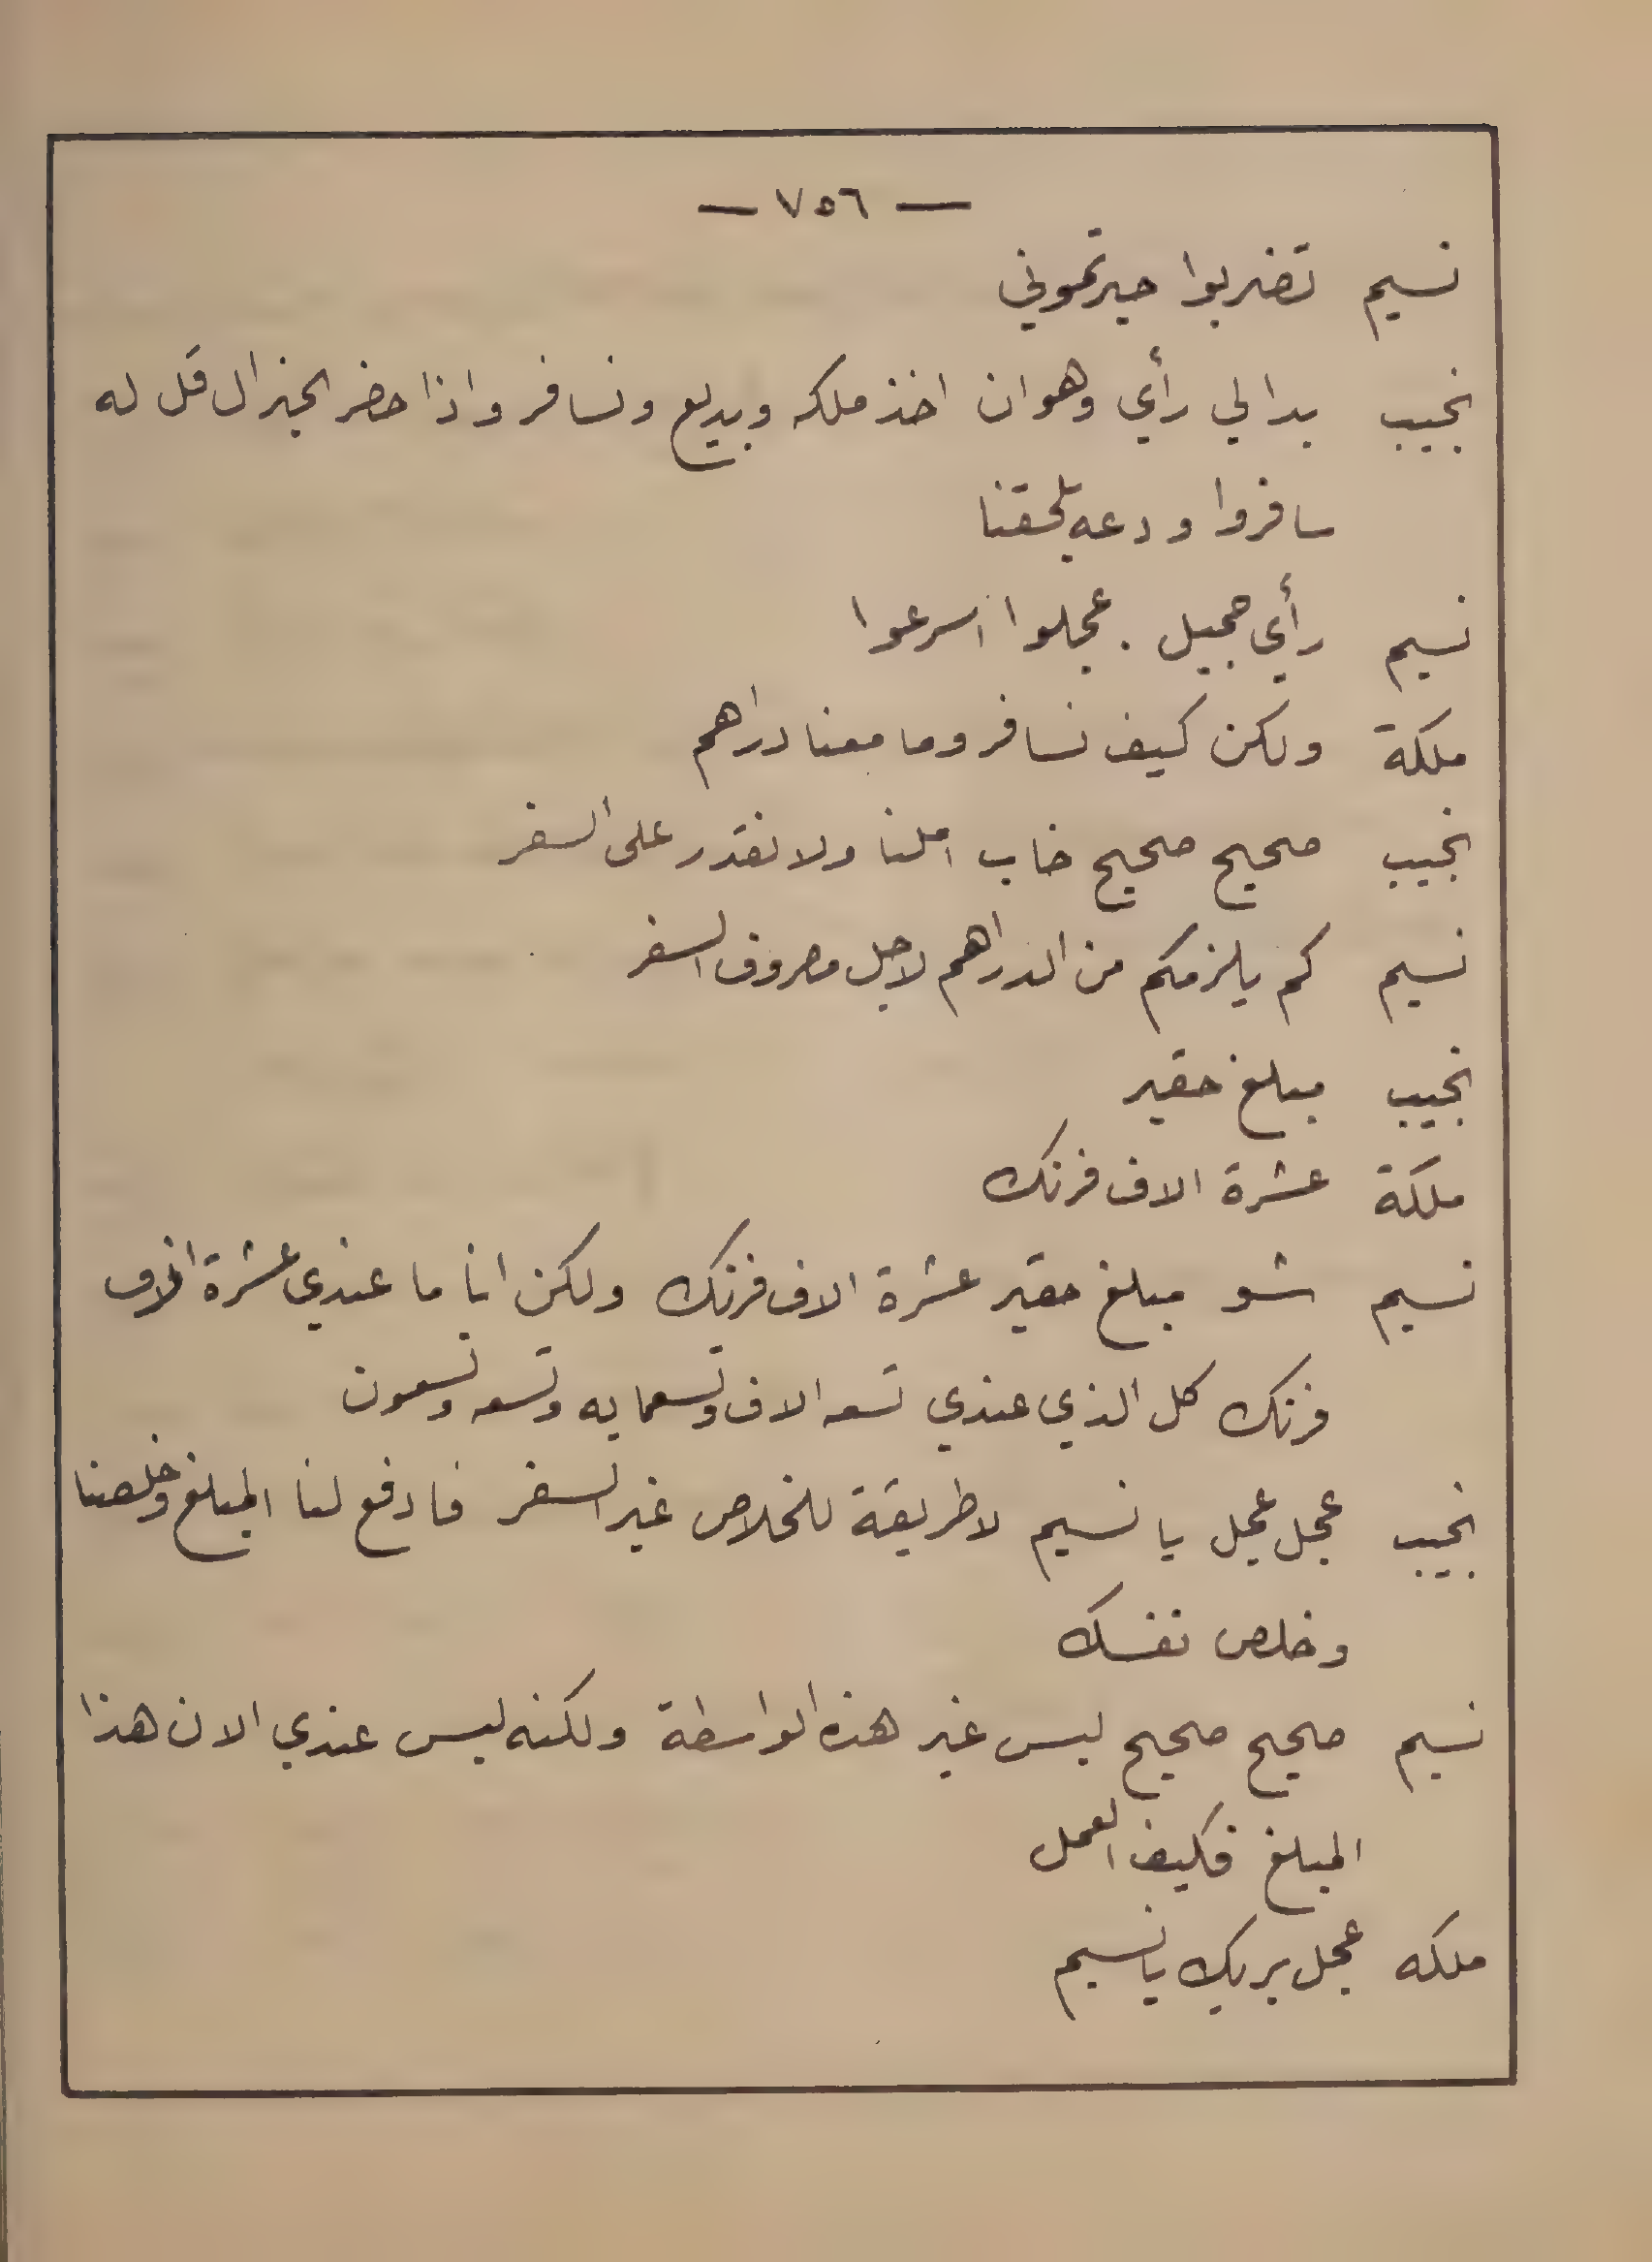 — ٧٥٦ —
نسيم تضربوا حيرتموني
نجيب بدا لي رأي وهو ان اخذ ملكه وبديع ونسافر واذا حضر الجنرال قل له
سافروا ودعه يلحقنا
نسيم رأي جميل . عجلوا اسرعوا
ملكة ولكن كيف نسافر وما معنا دراهم
نجيب صحيح صحيح خاب املنا ولا نقدر على السفر
نسيم كم يلزمكم من الدراهم لاجل مصروف السفر
نجيب مبلغ حقير
ملكة عشرة الاف فرنك
نسيم شو مبلغ حقير عشرة الاف فرنك ولكن انا ما عندي عشرة الاف
فرنك كل الذي عندي تسعه الاف وتسعمايه وتسعه وتسعون
نجيب عجل عجل يا نسيم لا طريقة للخلاص غير السفر فادفع لنا المبلغ وخلصنا
وخلص نفسك
نسيم صحيح صحيح ليس غير هذه الواسطة ولكنه ليس عندي الان هذا
المبلغ فكيف العمل
ملكه عجل بربك يا نسيم